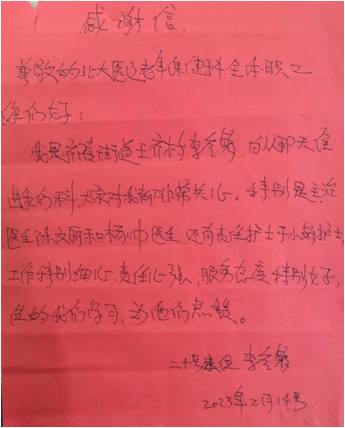 感谢信
尊敬的北大医辽老年保健科全体职工
您们好：
我是齐陵街道王齐村李冬敏，自从那天住
进您的科，大家对我都非常关心。特别是主治
医生陈文丽和杨帅医生 还有责任护士于小敏护士
工作特别细心，责任心强，服务态度特别好，
值的我们学习，为他们点赞。
二十号床位 李冬敏
2023年2月14号